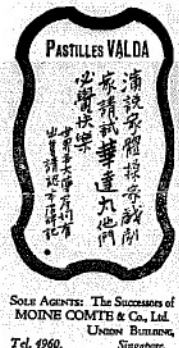 PASTILLES VALDA
演說家體操家戲劇
家請試華達丸他們
必覺快樂
世界各大藥房均有
出售請認本牌記
SOLE AGENTS: The Successors of
MOINE COMTE & Co., Ltd.
UNION BUILDING,
Tel. 4960. Singapore.